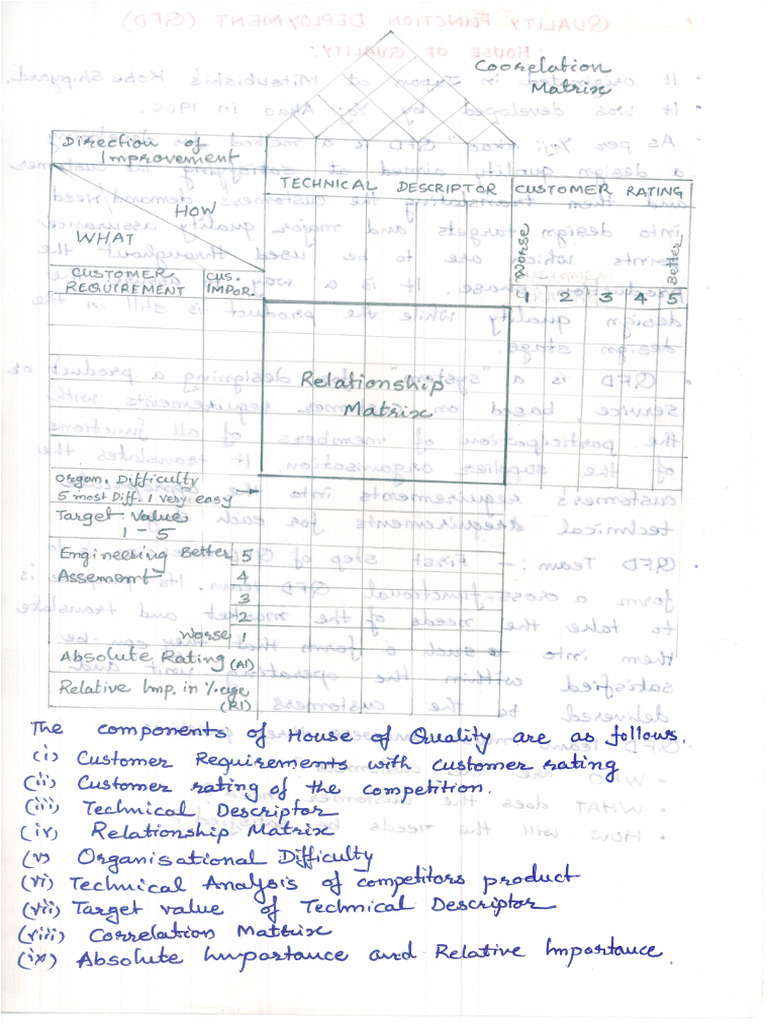 Coorelation
Matrix
Direction of
Improvement
TECHNICAL DESCRIPTOR
CUSTOMER RATING
HOW
WHAT
Worse
Better
CUSTOMER
REQUIREMENT
CUS.
IMPOR.
1 2 3 4 5
Relationship
Matrix
Organ. Difficulty
5 most Diff. 1 very easy →
Target Value
1 - 5
Engineering Better 5
Assement 4
3
2
Worse 1
Absolute Rating (AI)
Relative Imp. in %age
(RI)
The components of House of Quality are as follows.
(i) Customer Requirements with customer rating
(ii) Customer rating of the competition.
(iii) Technical Descriptor
(iv) Relationship Matrix
(v) Organisational Difficulty
(vi) Technical Analysis of competitors product
(vii) Target value of Technical Descriptor
(viii) Correlation Matrix
(ix) Absolute Importance and Relative Importance.